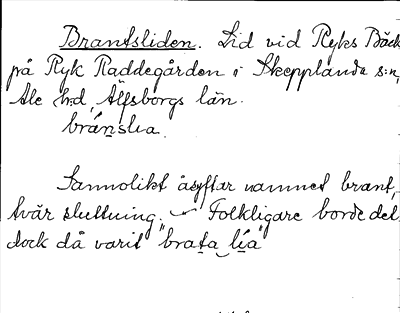 Brantsliden. Lid vid Ryks Bäck
på Ryk Räddegården i Skepplanda s:n,
Ale h:d, Älfsborgs län.
bránslia.
Sannolikt åsyftar namnet brant,
tvär sluttning. — Folkligare borde det
dock då varit "brata lia"